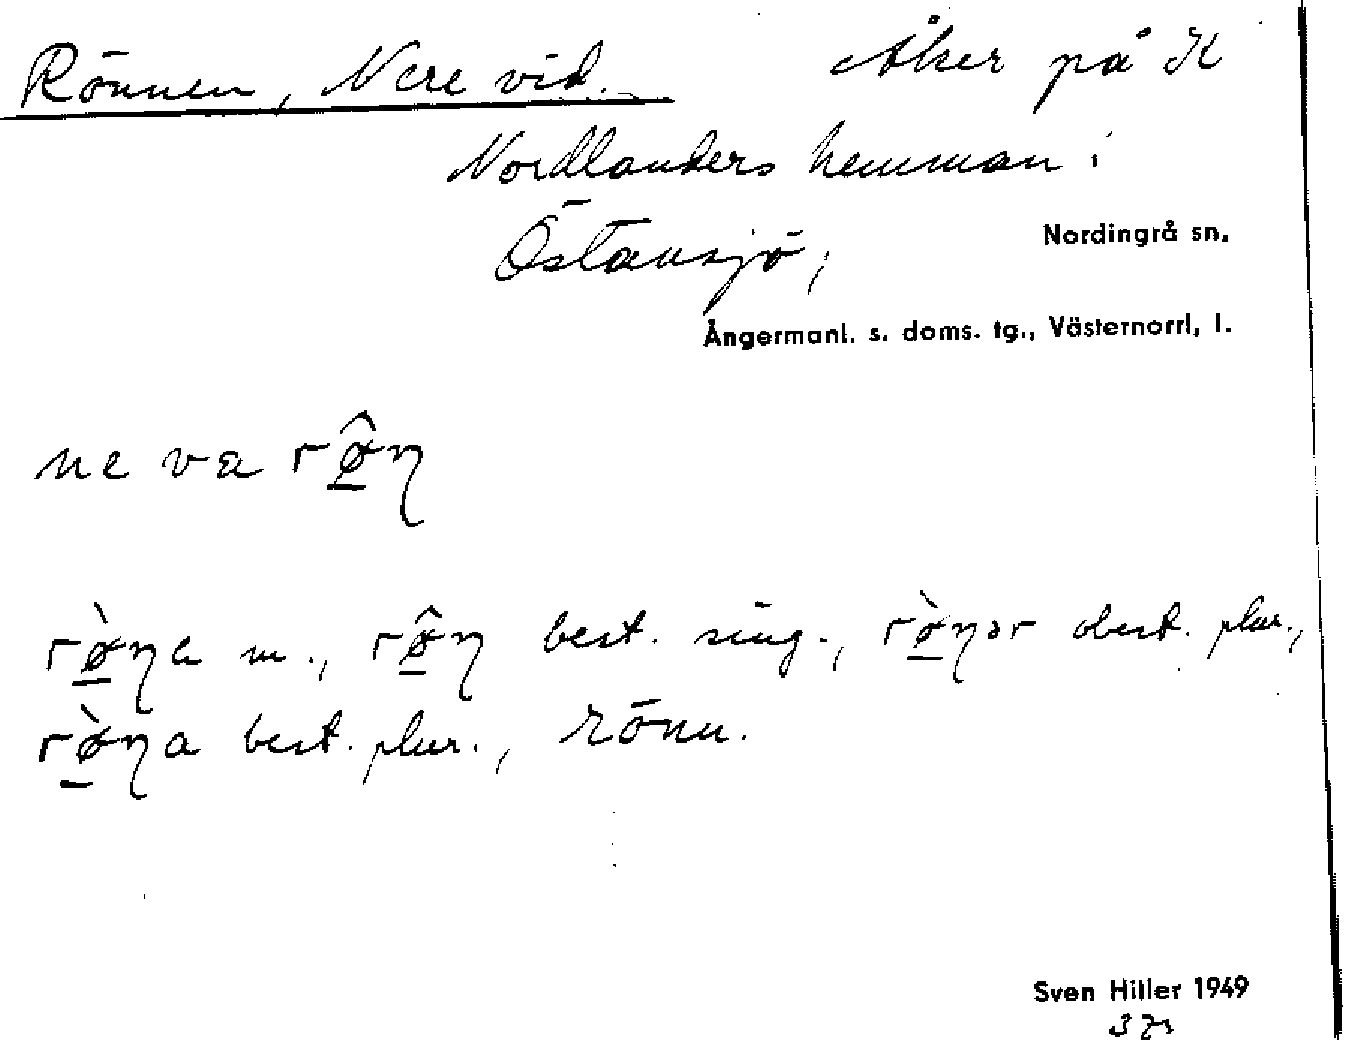 Rönnen, Nere vid. Åker på K
Nordlanders hemman i
Östansjö, Nordingrå sn,
Ångermanl. s. doms. tg., Västernorrl, l.
ne va rø̠̂ƞ
rø̠̀ƞa m., rø̠̂ƞ best. sing., rø̠̀ƞər obest. plur.,
rø̠̀ƞa best. plur., rönn.
Sven Hiller 1949